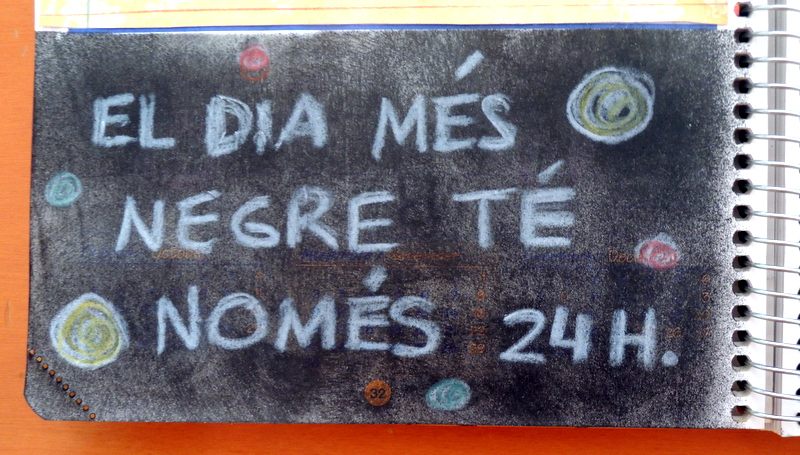 EL DIA MÉS
NEGRE TÉ
NOMÉS 24H.
32